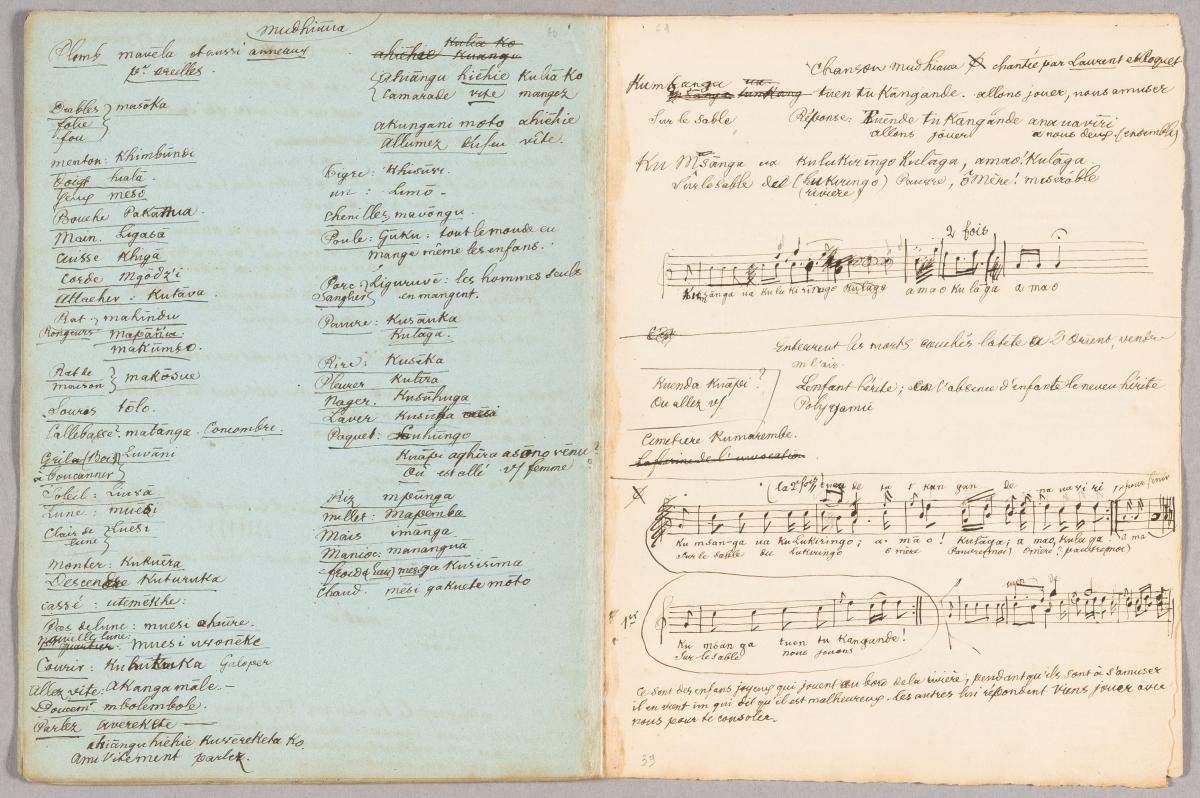 mudhiawa
Plomb mavela et aussi anneaux
pr oreilles.
Diables
folie
fou
masoka
menton: Khimbundi
Doigt hiala
yeux meso
Bouche Pakanwa
Main. Ligasa
cuisse Khiga
Corde Mgodzi
Attacher: Kutava
Rat. mahindu
Rongeurs mapania
makumbo.
Rat de
maison
makosue
Souris tolo.
Callebasse. matanga. Concombre.
Grila (Bois) Luvani
à boucanner
Soleil: Liuva
Lune: muesi
Clair de
lune
Luesi
Monter: Kukuera
Descendre Kuturuka
Cassé: utemekhe:
Pas de lune: muesi
nouvelle lune:
quartier. muesi
Courir: Galoper
Allez vite: Akangamale.—
Doucemt mbolembole.
Parlez averekete —
ahiangu hiehie kuvereketa ko
Ami vitement parlez.
ahiehie Kulia Ko
Kuangu
ahiangu hiehie kulia Ko
Camarade vite mangez
akungani moto ahiehie
Allumez du feu vite.
Tigre: Khisuvi.
un: Limo-
Chenilles mavongu.
Poule: Guku: tout le monde en
mange même les enfans.
Porc
Sanglier
Liguruve: les hommes seuls
en mangent.
Pauvre: Kusauka
Kulaga.
Rire: Kuseka
Pleurer Kulira
Nager. Kusuhuga
Laver Kusuka
Paquet: Luhungo
Kuapi aghira asono venu?
Où est allé vs/ femme
Riz mpunga
millet: Mapemba
Maïs imanga
Manioc: manangua
froid (Eau) mesi ga Kusisima
Chaud. mesi gakuete moto
Chanson mudhiawa chantée par Laurent et Roquet
Kumsanga ua
tuen tu Kangande. allons jouer, nous amuser
Sur le sable Réponse: Tuende tu Kangande ana uaviri
allons jouer a nous deux (ensemble)
Ku Msanga ua kulukiringo Kulaga, amao! Kulaga.
Sur le sable de (Lukiringo) Pauvre, ô Mère! misérable
(rivière)
2 fois
Kumsanga ua Kulukiringo Kulaga amao kulaga amao
Enterrent les morts couchés la tête à l'Orient, ventre
en l'air.
Kuenda Kuapi?
Où allez vs/
L'enfant hérite; en l'absence d'enfants le neveu hérite
Polygamie
Cimetière Kumarembe.
La farine de l'invocation.
(la 2e fois) tuen de tu kan gan de na ua vi ri pour finir
Ku msan-ga ua Kulukiringo; a-mao! Kulaga; a mao, Kulaga a ma
Sur le sable du Lukiringo ô mère Pauvre (moi) ô mère! pauvre (moi)
1er
tuen de
Ku msan ga tuen tu Kangande!
Sur le sable nous jouons
Ce sont des enfans joyeux qui jouent au bord de la rivière, pendant qu'ils sont à s'amuser
il en vient un qui dit qu'il est malheureux. les autres lui répondent Viens jouer avec
nous pour te consoler.
39